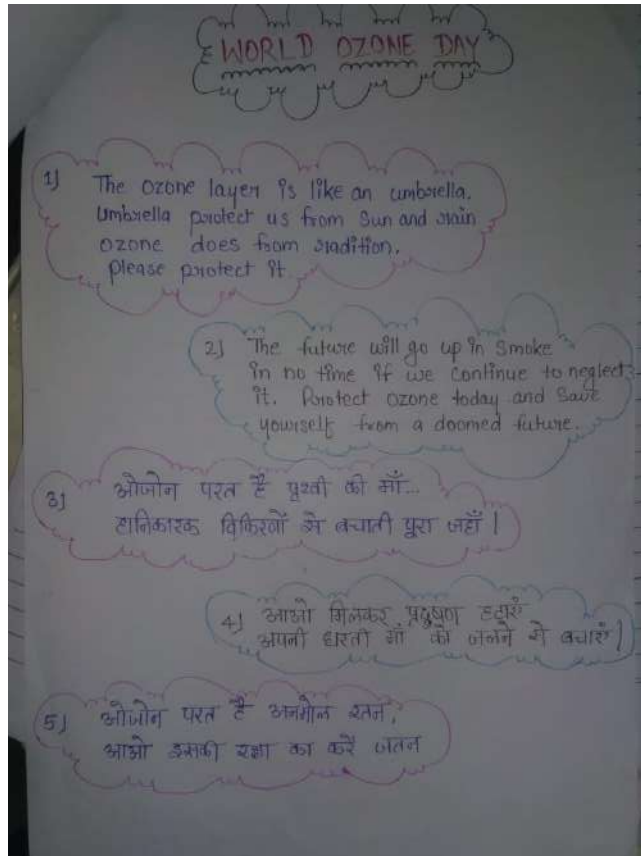 WORLD OZONE DAY
1) The ozone layer is like an umbrella.
Umbrella protect us from Sun and rain
ozone does from radition.
please protect it.
2) The future will go up in smoke
in no time if we continue to neglect
it. Protect ozone today and save
yourself from a doomed future.
3) ओजोन परत है पृथ्वी की माँ...
हानिकारक विकिरणों से बचाती पूरा जहाँ।
4) आओ मिलकर प्रदुषण हटाएं
अपनी धरती माँ को जलने से बचाएं।
5) ओजोन परत है अनमोल रतन,
आओ इसकी रक्षा का करें जतन